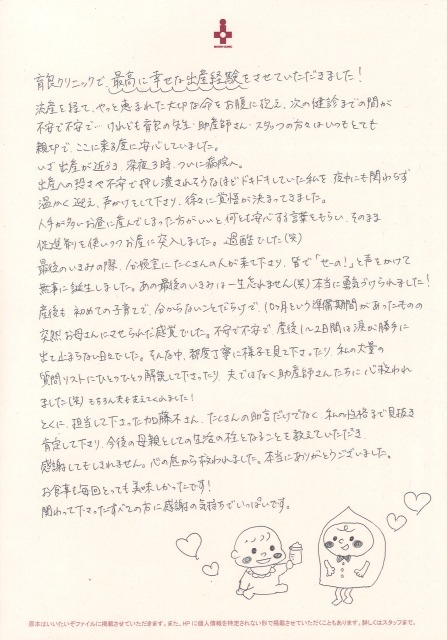 育良クリニックで、最高に幸せな出産経験をさせていただきました！
流産を経て、やっと恵まれた大切な命をお腹に抱え、次の健診までの間が
不安で不安で… けれども育良の先生・助産師さん・スタッフの方々はいつもとても
親切で、ここに来る度に安心していました。
いざ出産が近づき、深夜3時、ついに病院へ。
出産への恐さや不安で押し潰されそうなほどドキドキしていた私を、夜中にも関わらず
温かく迎え、声かけをして下さり、徐々に覚悟が決まってきました。
人手が多いお昼に産んでしまった方がいいと何とも安心する言葉をもらい、そのまま
促進剤を使いつつお産に突入しました。過酷でした(笑)
最後のいきみの際、分娩室にたくさんの人が来て下さり、皆で「せーの！」と声をかけて
無事に誕生しました。あの最後のいきみは一生忘れません(笑)本当に勇気づけられました！
産後も初めての子育てで、分からないことだらけで、10ヶ月という準備期間があったものの
突然お母さんにさせられた感覚でした。不安で不安で、産後1〜2日間は涙が勝手に
出て止まらない日々でした。そんな中、都度丁寧に様子を見て下さったり、私の大量の
質問リストにひとつひとつ解説して下さったり、夫ではなく助産師さんたちに心救われ
ました(笑)もちろん夫も支えてくれました！
とくに、担当して下さった加藤木さん、たくさんの助言だけでなく、私の性格まで見抜き
肯定して下さり、今後の母親としての生活の柱となることを教えていただき、
感謝してもしきれません。心の底から救われました。本当にありがとうございました。
お食事も毎回とっても美味しかったです！
関わって下さったすべての方に感謝の気持ちでいっぱいです。
原本はいいたいぞファイルに掲載させていただきます。また、HPに個人情報を特定されない形で掲載させていただくこともあります。詳しくはスタッフまで。